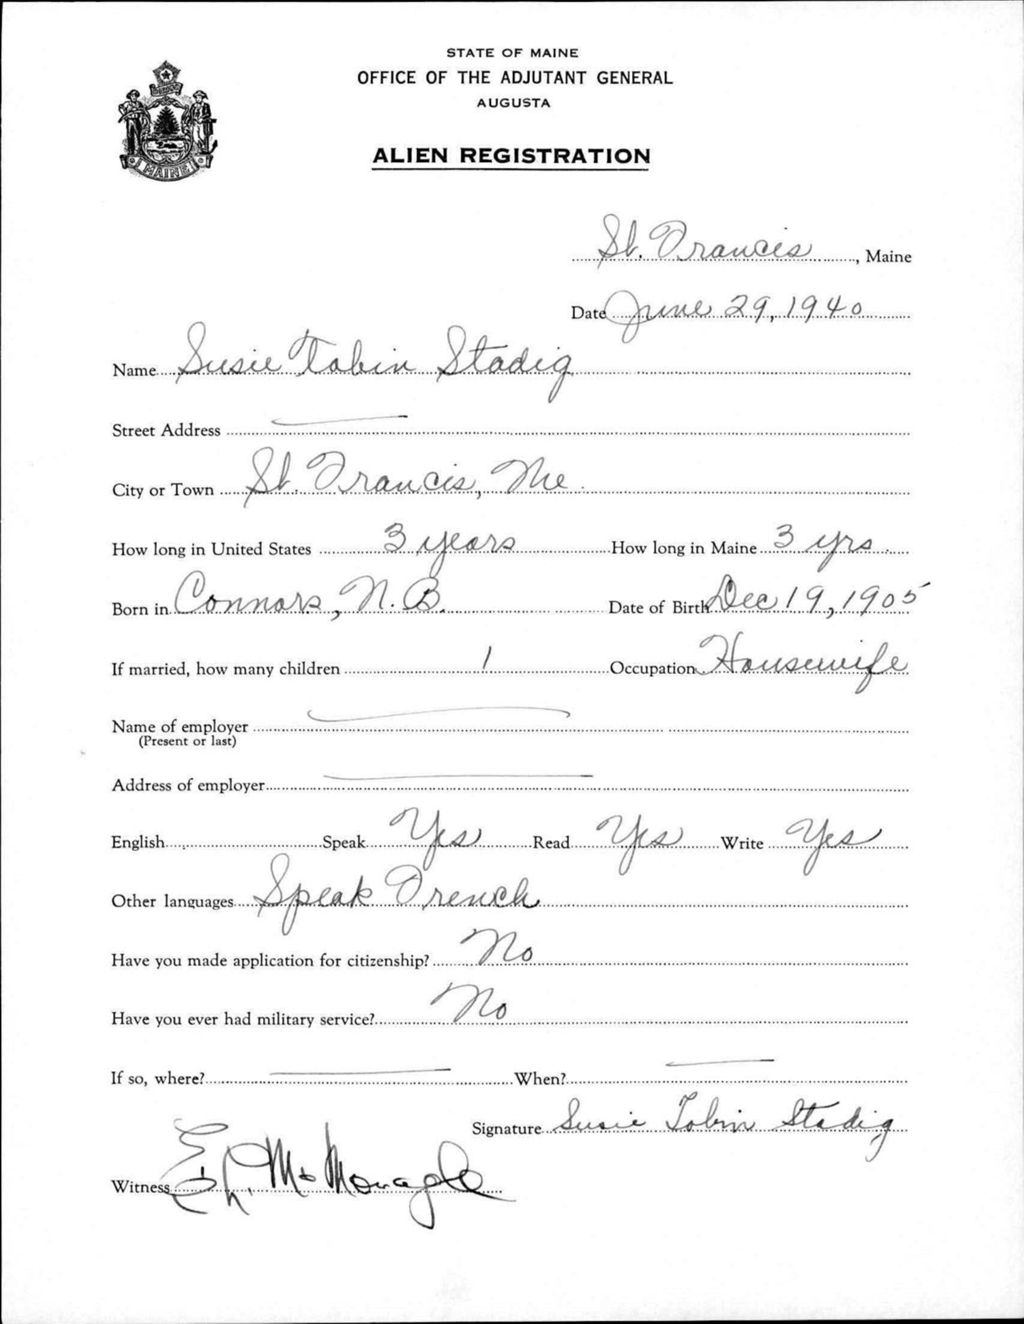 STATE OF MAINE
OFFICE OF THE ADJUTANT GENERAL
AUGUSTA
ALIEN REGISTRATION
MAINE
St. Francis, Maine
Date June 29, 1940
Name Susie Tobin Stadig
Street Address
City or Town St. Francis, Me.
How long in United States 3 years How long in Maine 3 yrs.
Born in Connors, N.B. Date of Birth Dec 19, 1905
If married, how many children 1 Occupation Housewife
Name of employer
(Present or last)
Address of employer
English Speak Yes Read Yes Write Yes
Other languages Speak French
Have you made application for citizenship? No
Have you ever had military service? No
If so, where? When?
Signature Susie Tobin Stadig
Witness McMonagle